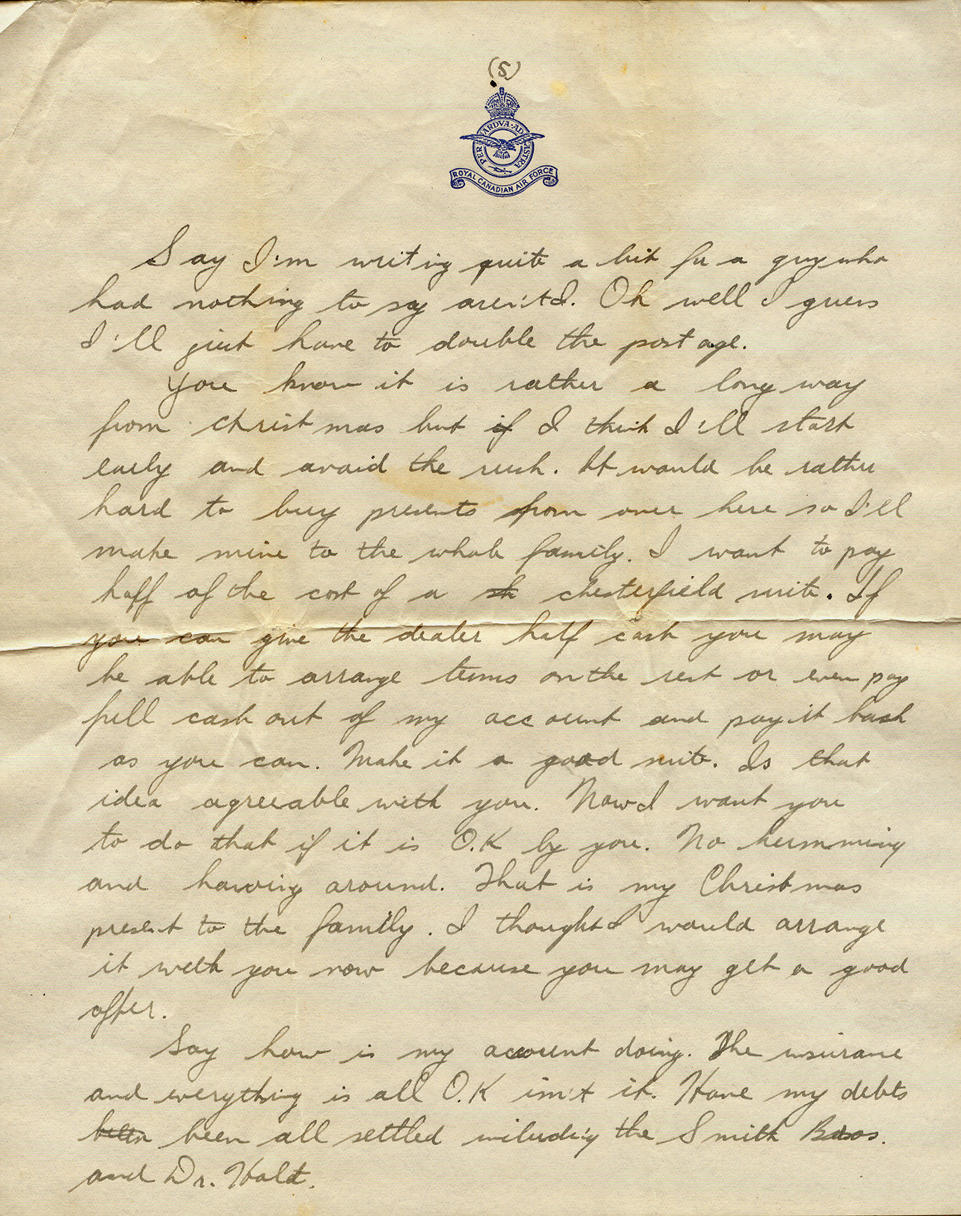 (5)
PER ARDVA AD ASTRA
ROYAL CANADIAN AIR FORCE
Say I'm writing quite a bit for a guy who
had nothing to say aren't I. Oh well I guess
I'll just have to double the postage.
You know it is rather a long way
from christmas but if I think I'll start
early and avoid the rush. It would be rather
hard to buy presents from over here so I'll
make mine to the whole family. I want to pay
half of the cost of a sh chesterfield suite. If
you can give the dealer half cash you may
be able to arrange terms on the rest or even pay
full cash out of my account and pay it back
as you can. Make it a good suite. Is that
idea agreeable with you. Now I want you
to do that if it is O.K by you. No humming
and hawing around. That is my Christmas
present to the family. I thought I would arrange
it with you now because you may get a good
offer.
Say how is my account doing. The insurance
and everything is all O.K isn't it. Have my debts
been all settled including the Smith Bros.
and Dr. Holt.